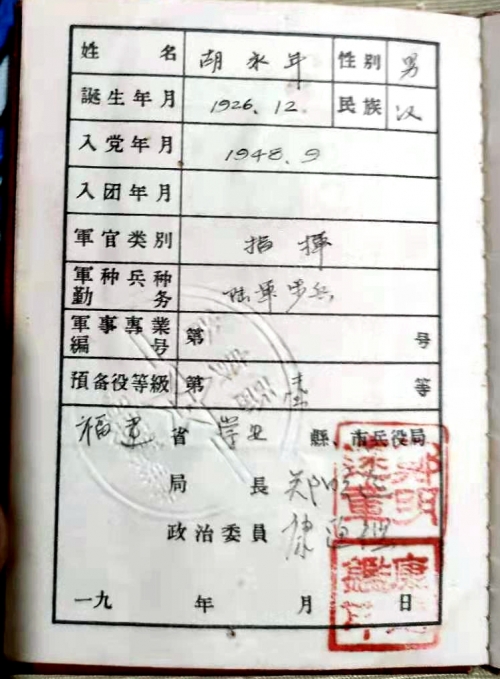 姓名 胡永年 性别 男
誕生年月 1926.12. 民族 汉
入党年月 1948.9
入团年月
軍官类別 指揮
軍种兵种勤务 陆軍步兵
軍事專業編号 第 号
預备役等級 第 壹 等
福建省 县、市兵役局
局長 郑
政治委員 康
一九 年 月 日